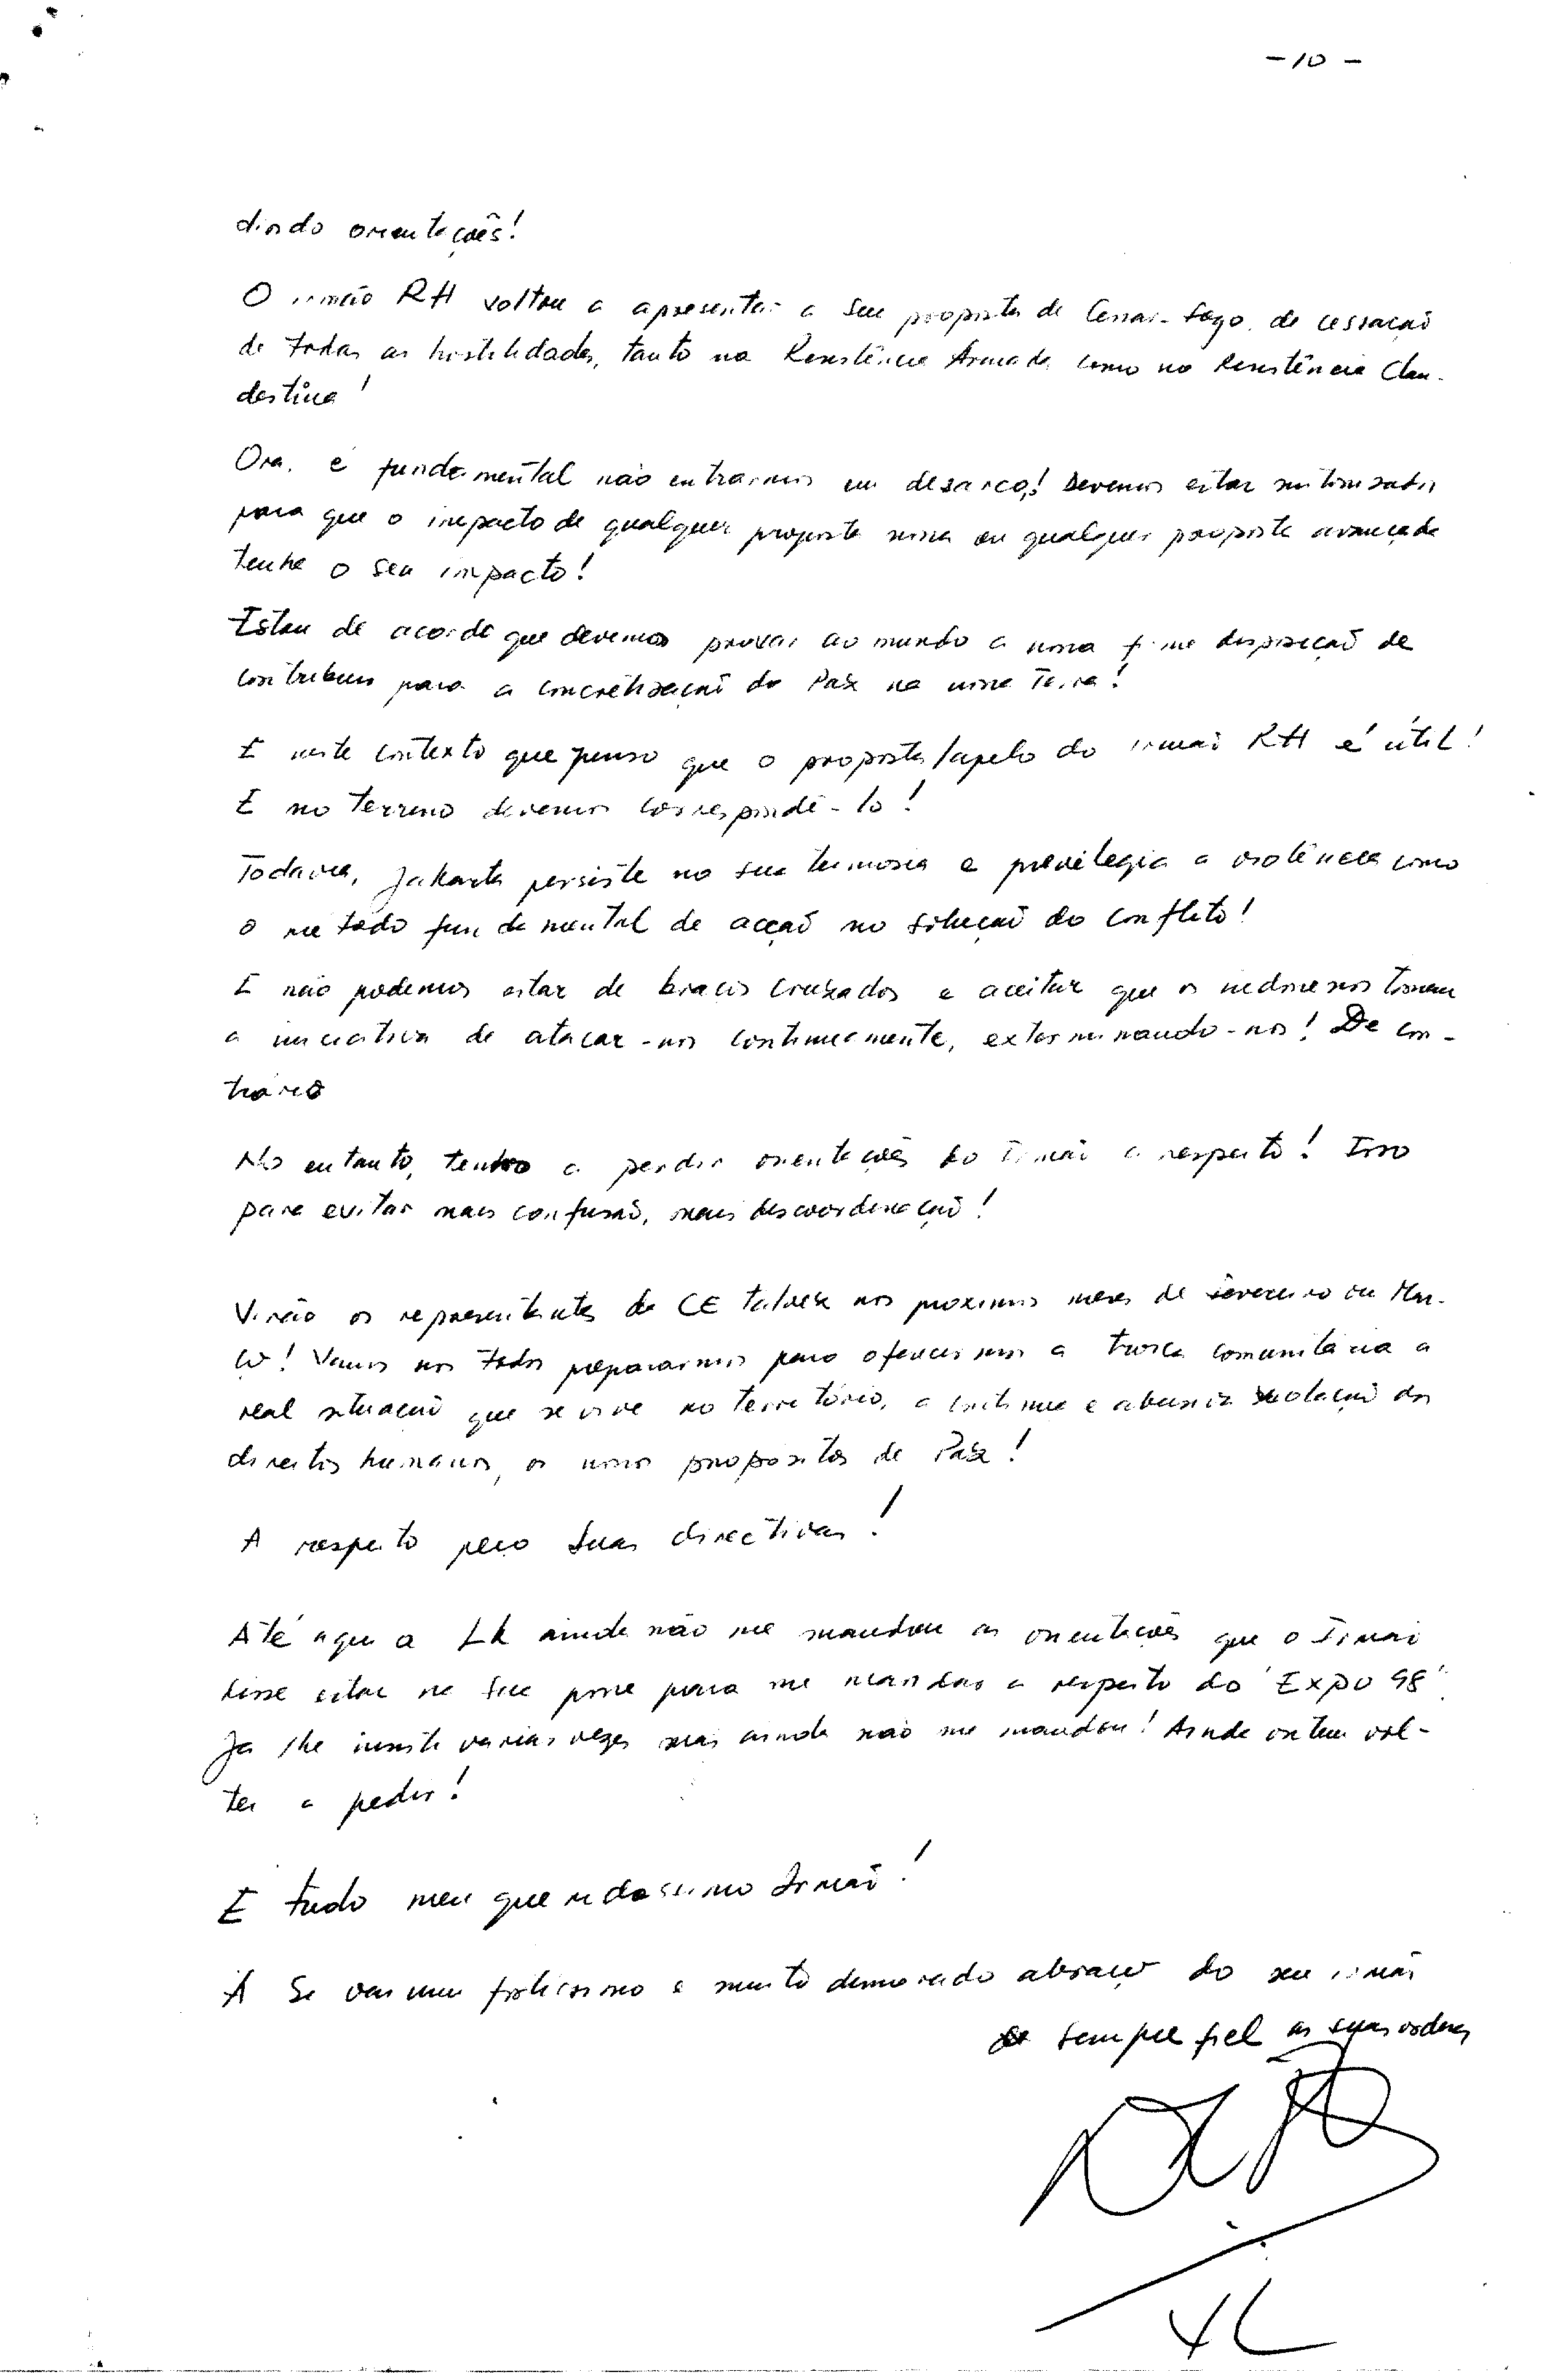 - 10 -
dindo orientações!
O irmão RH voltou a apresentar a sua proposta de Cessar-fogo, de cessação
de todas as hostilidades, tanto na Resistência Armada como na Resistência Clan-
destina!
Ora, é fundamental não entrarmos em desarco! Devemos estar sintonizados
para que o impacto de qualquer proposta nossa ou qualquer proposta avançada
tenha o seu impacto!
Estou de acordo que devemos provar ao mundo a nossa firme disposição de
contribuir para a concretização da Paz na nossa Terra!
E neste contexto que penso que o proposta/apelo do irmão RH é útil!
E no terreno devemos correspondê-lo!
Todavia, Jakarta persiste na sua teimosia e previlegia a violência como
o método fundamental de acção na solução do conflito!
E não podemos estar de braços cruzados e aceitar que os indonésios tomem
a iniciativa de atacar-nos continuamente, exterminando-nos! De con-
trário
No entanto, tendo a perdir orientações do Irmão a respeito! Isso
para evitar mais confusão, mais descoordenação!
Virão os representantes da CE talvez nos proximos meses de Fevereiro ou Mar-
ço! Vamos nos todos prepararmos para oferecermos a troica comunitária a
real situação que se vive no território, a contínua e abusiva violação dos
direitos humanos, os nossos propósitos de Paz!
A respeito peço suas directivas!
Até aqui a LK ainda não me mandou as orientações que o Irmão
disse estar na sua posse para me mandar a respeito do "Expo 98".
Ja lhe insisti varias vezes mas ainda não me mandou! Ainda ontem vol-
tei a pedir!
E tudo meu queridossimo Irmão!
A Se vai um fortissimo e muito demorado abraço do seu irmão
sempre fiel as suas ordens